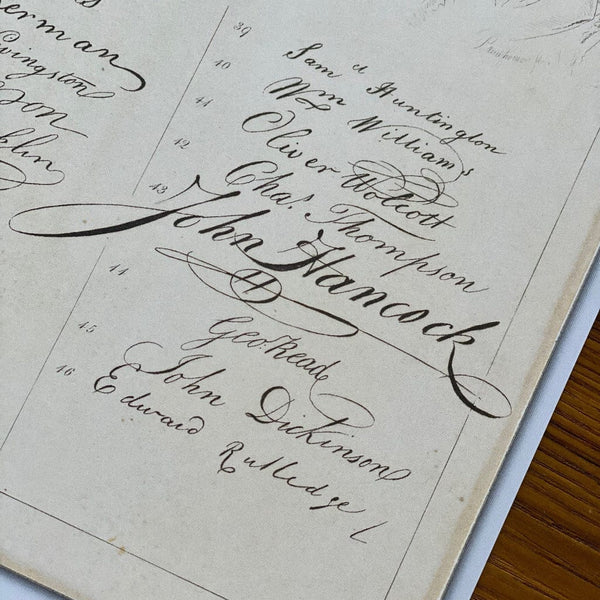 erman
ivingston
son
klin
39 Saml Huntington
40 Wm Williams
41 Oliver Wolcott
42 Chas. Thompson
43 John Hancock
44 Geo: Read
45 John Dickinson
46 Edward Rutledge